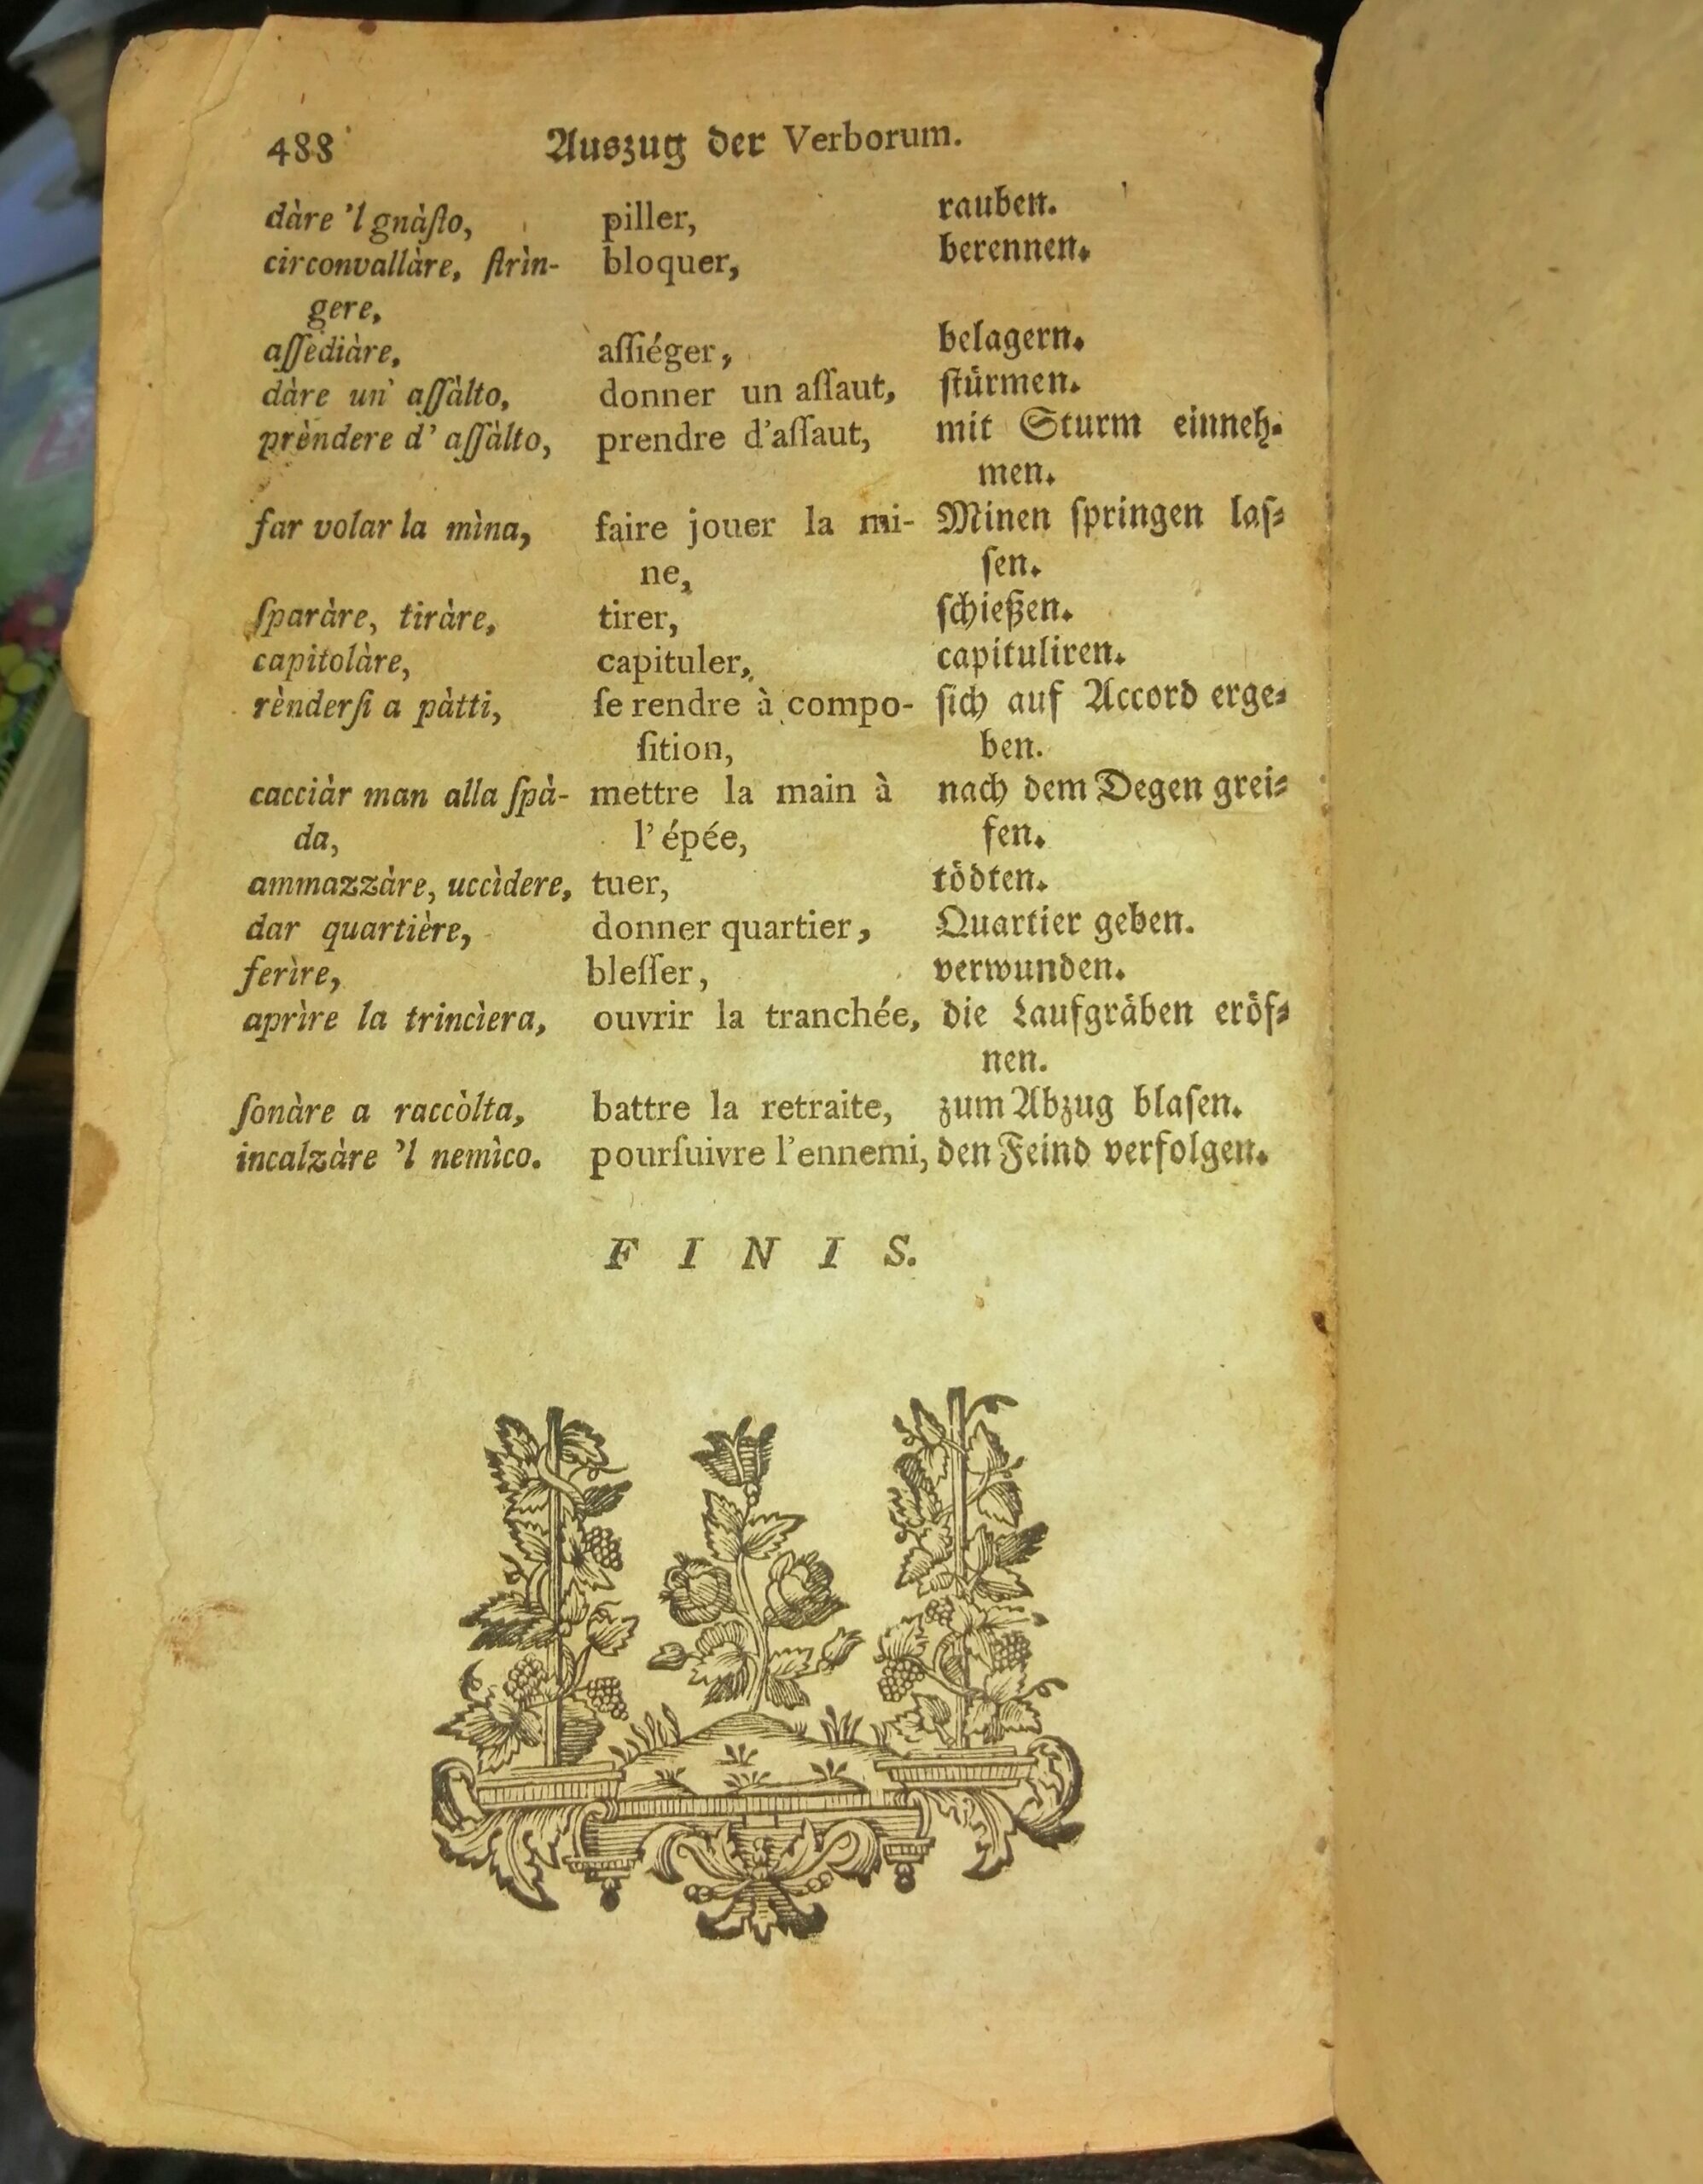 488 Auszug der Verborum.
dàre 'l gnàſto, piller, rauben.
circonvallàre, ſtrìn- bloquer, berennen.
gere,
aſſediàre, aſſiéger, belagern.
dàre un' aſſàlto, donner un aſſaut, ſtürmen.
prèndere d' aſſàlto, prendre d'aſſaut, mit Sturm einneh-
men.
far volar la mìna, faire jouer la mi- Minen ſpringen laſ-
ne, ſen.
ſparàre, tiràre, tirer, ſchießen.
capitolàre, capituler, capituliren.
rènderſi a pàtti, ſe rendre à compo- ſich auf Accord erge-
ſition, ben.
cacciàr man alla ſpà- mettre la main à nach dem Degen grei-
da, l' épée, fen.
ammazzàre, uccìdere, tuer, tödten.
dar quartière, donner quartier, Quartier geben.
ferìre, bleſſer, verwunden.
aprìre la trincìera, ouvrir la tranchée, die Laufgräben eröf-
nen.
ſonàre a raccòlta, battre la retraite, zum Abzug blaſen.
incalzàre 'l nemìco. pourſuivre l'ennemi, den Feind verfolgen.
F I N I S.